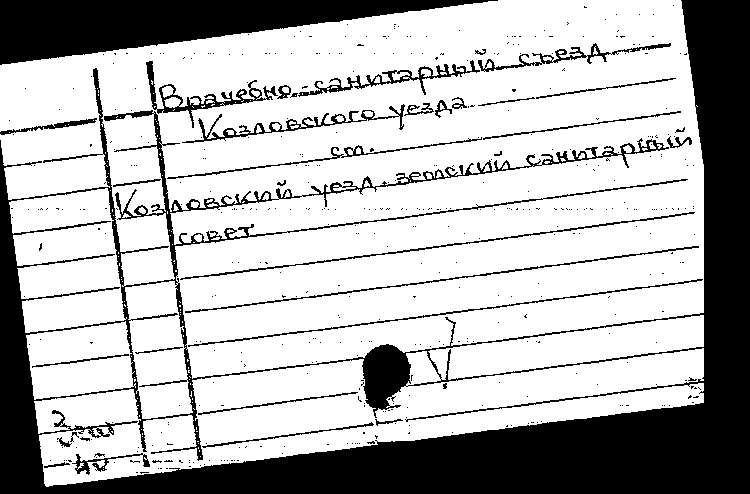 Врачебно-санитарный съезд
Козловского уезда
ст.
Козловский уезд. земский санитарный
совет
Зем
40